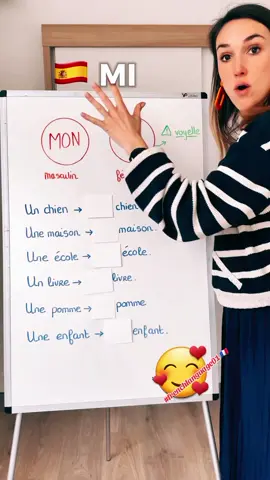 🇪🇸 MI
MON
⚠ voyelle
masculin
Un chien → chien
Une maison → maison.
Une école → école.
Un livre → livre.
Une pomme → pomme
Une enfant → enfant.